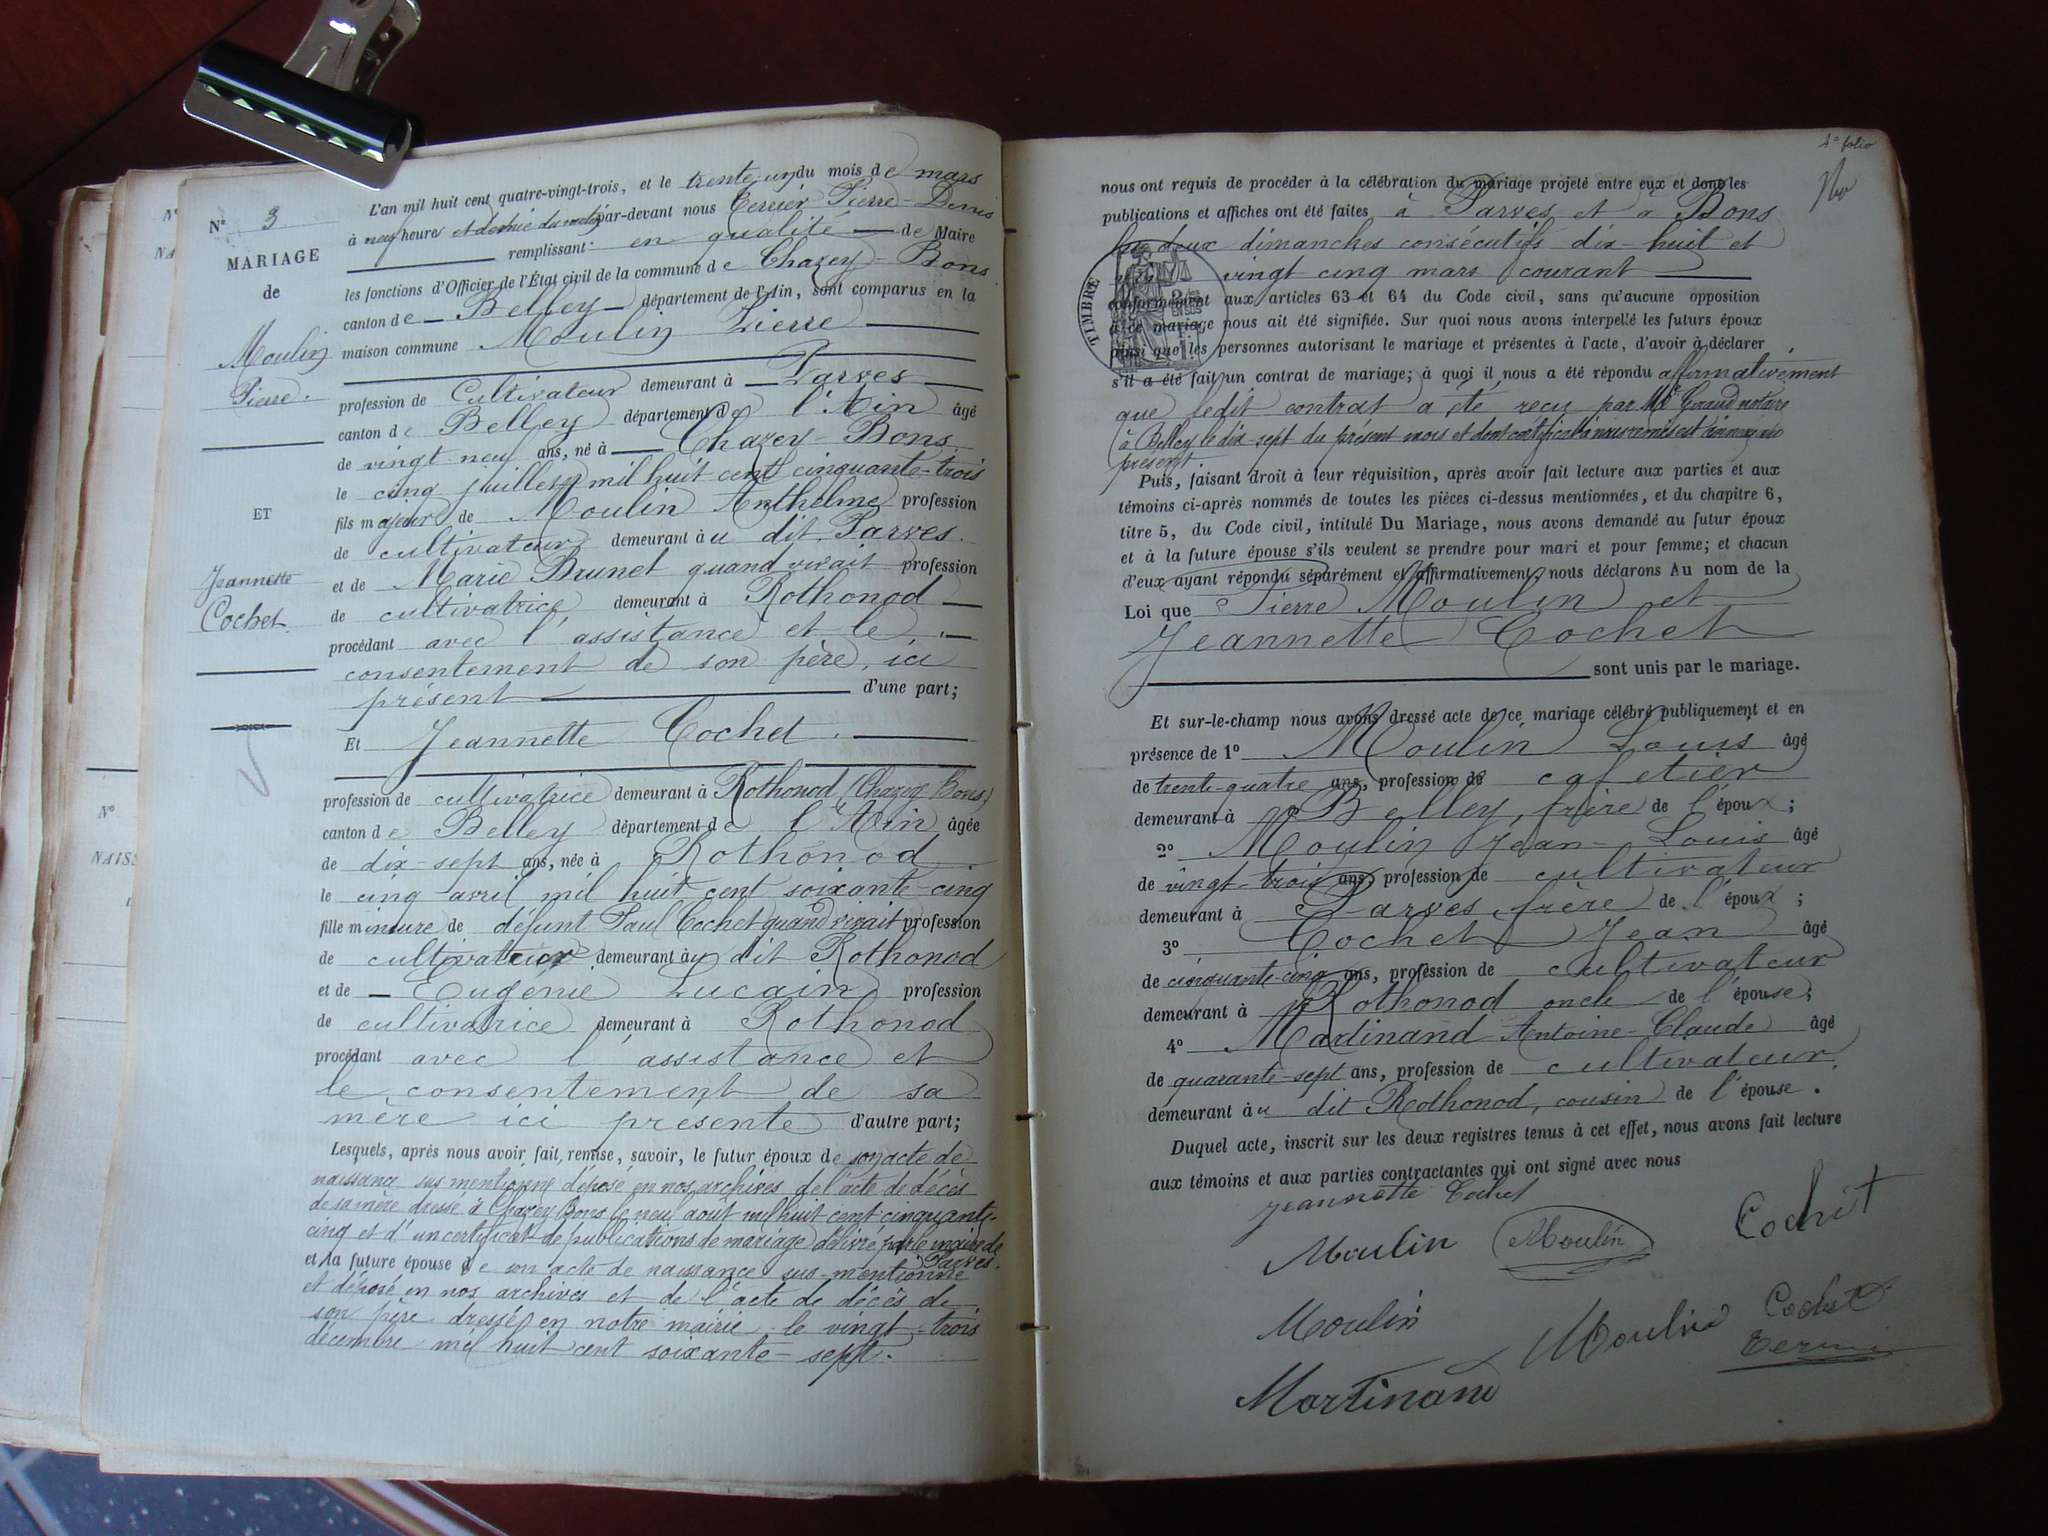 N° 3
MARIAGE
de
Moulin
Pierre.
ET
Jeannette
Cochet.
L'an mil huit cent quatre-vingt-trois, et le trente-un du mois de mars
à neuf heures et demie du matin par-devant nous Terrier Pierre-Denis
remplissant en qualité de Maire
les fonctions d'Officier de l'État civil de la commune de Chazey-Bons
canton de Belley département de l'Ain, sont comparus en la
maison commune Moulin Pierre
profession de Cultivateur demeurant à Parves
canton de Belley département de l'Ain âgé
de vingt-neuf ans, né à Chazey-Bons
le cinq juillet mil huit cent cinquante-trois
fils majeur de Moulin Anthelme profession
de cultivateur demeurant à u dit Parves.
et de Marie Brunet quand vivait profession
de cultivatrice demeurant à Rothonod
procédant avec l'assistance et le
consentement de son père, ici
présent d'une part;
Et Jeannette Cochet.
profession de cultivatrice demeurant à Rothonod (Chazey-Bons)
canton de Belley département de l'Ain âgée
de dix-sept ans, née à Rothonod
le cinq avril mil huit cent soixante-cinq
fille mineure de défunt Paul Cochet quand vivait profession
de cultivateur demeurant au dit Rothonod
et de Eugénie Lucain profession
de cultivatrice demeurant à Rothonod
procédant avec l'assistance et
le consentement de sa
mère ici présente d'autre part;
Lesquels, après nous avoir fait remise, savoir, le futur époux de son acte de
naissance sus mentionné déposé en nos archives de l'acte de décès
de sa mère dressé à Chazey-Bons le neuf août mil huit cent cinquante-
cinq et d'un certificat de publications de mariage délivré par le maire de
Parves.
et la future épouse de son acte de naissance sus-mentionné
et déposé en nos archives et de l'acte de décès de
son père dressé en notre mairie le vingt-trois
décembre mil huit cent soixante-sept.
4e folio
nous ont requis de procéder à la célébration du mariage projeté entre eux et dont les
publications et affiches ont été faites à Parves et à Bons
les deux dimanches consécutifs dix-huit et
vingt cinq mars courant
TIMBRE
conformément aux articles 63 et 64 du Code civil, sans qu'aucune opposition
à ce mariage nous ait été signifiée. Sur quoi nous avons interpellé les futurs époux
ainsi que les personnes autorisant le mariage et présentes à l'acte, d'avoir à déclarer
s'il a été fait un contrat de mariage; à quoi il nous a été répondu affirmativement
que ledit contrat a été reçu par Me Giraud notaire
à Belley le dix-sept du présent mois et dont certificat à nous remis est annexé au
présent
Puis, faisant droit à leur réquisition, après avoir fait lecture aux parties et aux
témoins ci-après nommés de toutes les pièces ci-dessus mentionnées, et du chapitre 6,
titre 5, du Code civil, intitulé Du Mariage, nous avons demandé au futur époux
et à la future épouse s'ils veulent se prendre pour mari et pour femme; et chacun
d'eux ayant répondu séparément et affirmativement, nous déclarons Au nom de la
Loi que Pierre Moulin et
Jeannette Cochet
sont unis par le mariage.
Et sur-le-champ nous avons dressé acte de ce mariage célébré publiquement et en
présence de 1° Moulin Louis âgé
de trente-quatre ans, profession de cafetier
demeurant à Belley, frère de l'époux;
2° Moulin Jean-Louis âgé
de vingt-trois ans, profession de cultivateur
demeurant à Parves, frère de l'époux;
3° Cochet Jean âgé
de cinquante-cinq ans, profession de cultivateur
demeurant à Rothonod oncle de l'épouse;
4° Martinand Antoine-Claude âgé
de quarante-sept ans, profession de cultivateur
demeurant à u dit Rothonod, cousin de l'épouse.
Duquel acte, inscrit sur les deux registres tenus à cet effet, nous avons fait lecture
aux témoins et aux parties contractantes qui ont signé avec nous
Jeannette Cochet
Moulin Moulin Cochet
Moulin Moulin Cochet
Martinand